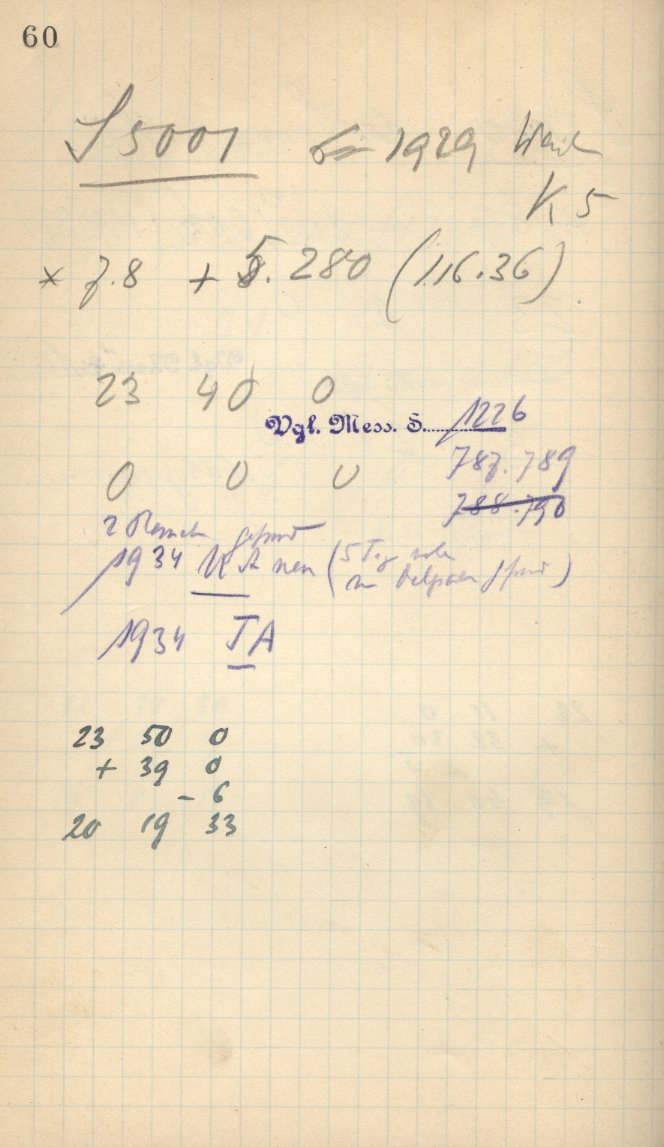 60
S 5001 1929
K 5
× 7.8 + 5.280 (116.36)
23 40 0
Vgl. Mess. S. 1226
0 0 0
787.789
788.790
1934 neu (5 Tag
1934 JA
23 50 0
+ 39 0
- 6
20 19 33